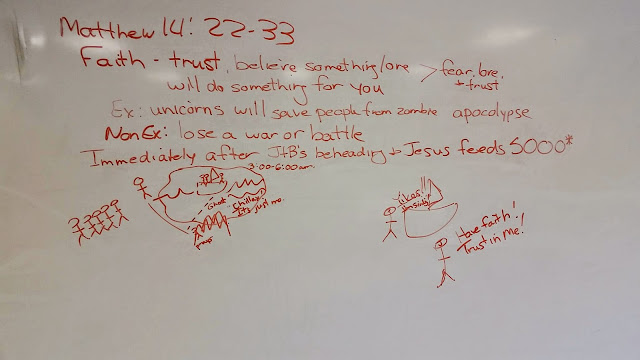 Matthew 14: 22-33
Faith - trust, believe something/one > fear, love, + trust
will do something for you
Ex: unicorns will save people from zombie apocolypse
NonEx: lose a war or battle
Immediately after JtB's beheading + Jesus feeds 5000*
3:00-6:00am
Ghost
Chillax
It's just me.
Yikes!!
I'm sinking
Have faith!
Trust in me!